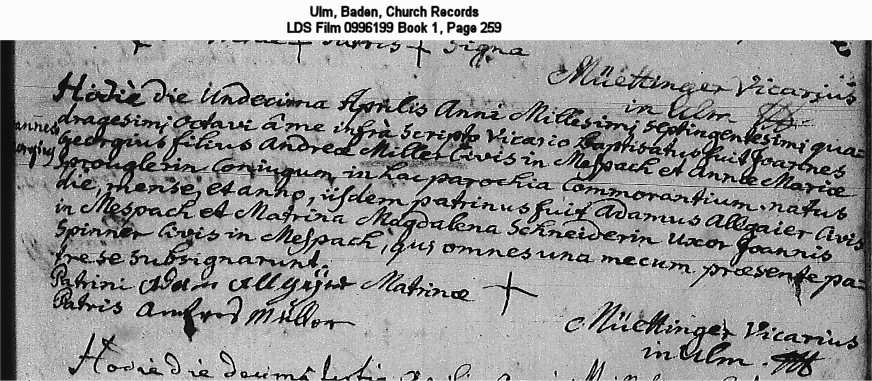 Ulm, Baden, Church Records
LDS Film 0996199 Book 1, Page 259
Patris + Signa
Müettinger Vicarius
in Ulm
Hodie die Undecima Aprilis Anni Millesimi Septingentesimi qua=
dragesimi octavi â me infrà Scripto Vicario baptisatus fuit Joannes
Georgius filius Andreæ Miller Civis in Mespach et Annæ Mariæ
Spronglerin Coniugum, in hac parochia Commorantium. natus
die, mense, et anno, iisdem patrinus fuit Adamus Allgaier Civis
in Mespach et Matrina Magdalena Schneiderin uxor Joannis
Spinner Civis in Mespach, qui omnes una mecum præsente pa=
tre se subsignarunt.
Patrini Adam Allgeyer Matrinæ +
Patris Andres Müller
Müettinger Vicarius
in Ulm.
Hodie die decima tertia